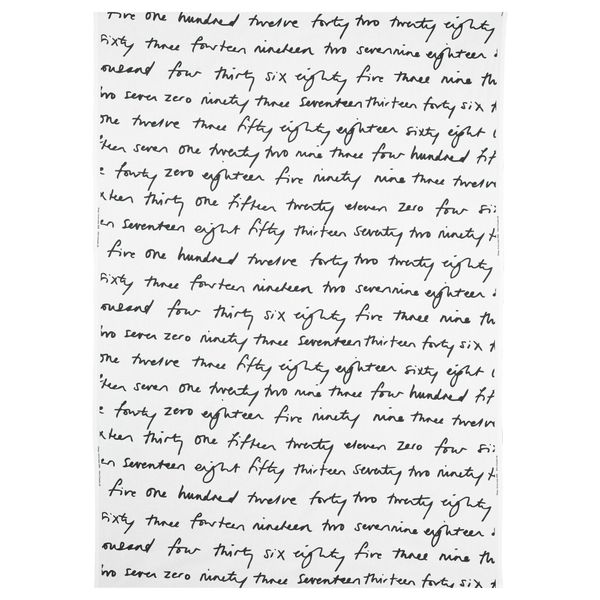 five one hundred twelve forty two twenty eighty
sixty three fourteen nineteen two seven nine eighteen
ousand four thirty six eighty five three nine th
two seven zero ninety three seventeen thirteen forty six t
one twelve three fifty eighty eighteen sixty eight
teen seven one twenty two nine three four hundred fif
e forty zero eighteen five ninety nine three twelve
xteen thirty one fifteen twenty eleven zero four si
en seventeen eight fifty thirteen seventy two ninety t
five one hundred twelve forty two twenty eighty
sixty three fourteen nineteen two seven nine eighteen
ousand four thirty six eighty five three nine th
two seven zero ninety three seventeen thirteen forty six t
one twelve three fifty eighty eighteen sixty eight
teen seven one twenty two nine three four hundred fif
e forty zero eighteen five ninety nine three twelve
xteen thirty one fifteen twenty eleven zero four si
en seventeen eight fifty thirteen seventy two ninety t
five one hundred twelve forty two twenty eighty
sixty three fourteen nineteen two seven nine eighteen
ousand four thirty six eighty five three nine th
two seven zero ninety three seventeen thirteen forty six t